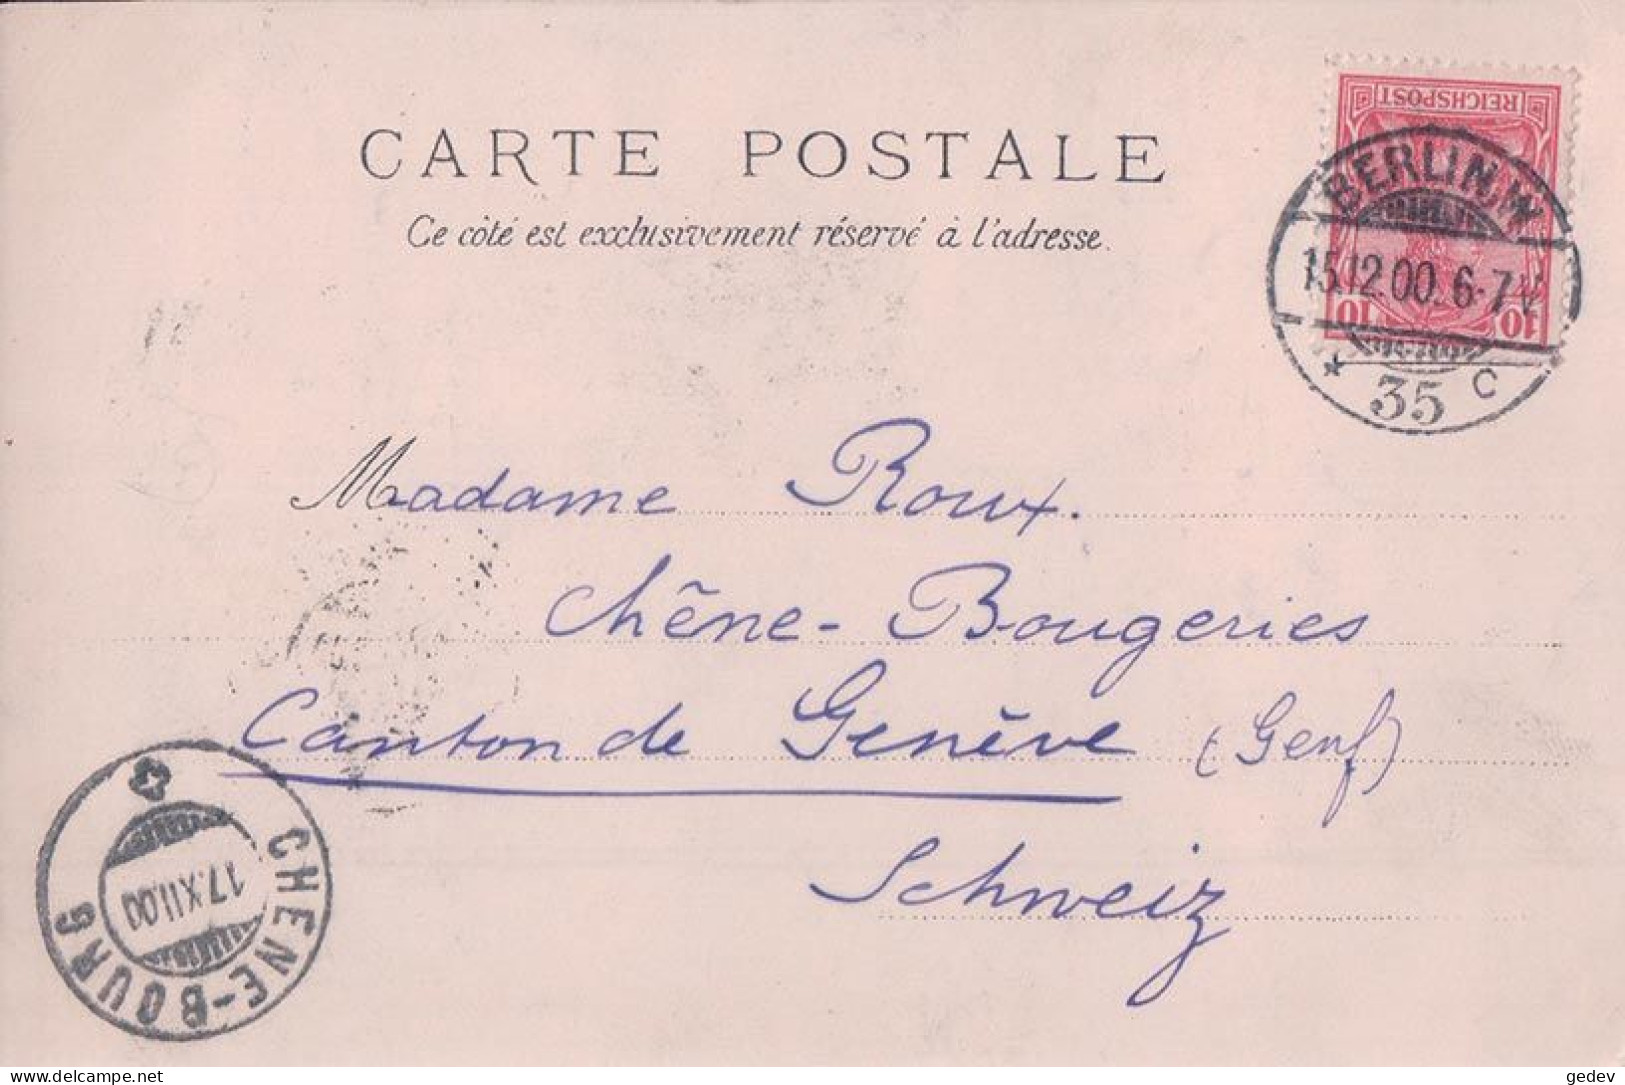 CARTE POSTALE
Ce côté est exclusivement réservé à l'adresse.
REICHSPOST
10 10
BERLIN.W
15.12.00. 6-7V.
* 35 c
Madame Roux.
Chêne-Bougeries
Canton de Genève (Genf)
Schweiz
CHENE-BOURG
17.XII.00
delcampe.net
gedev